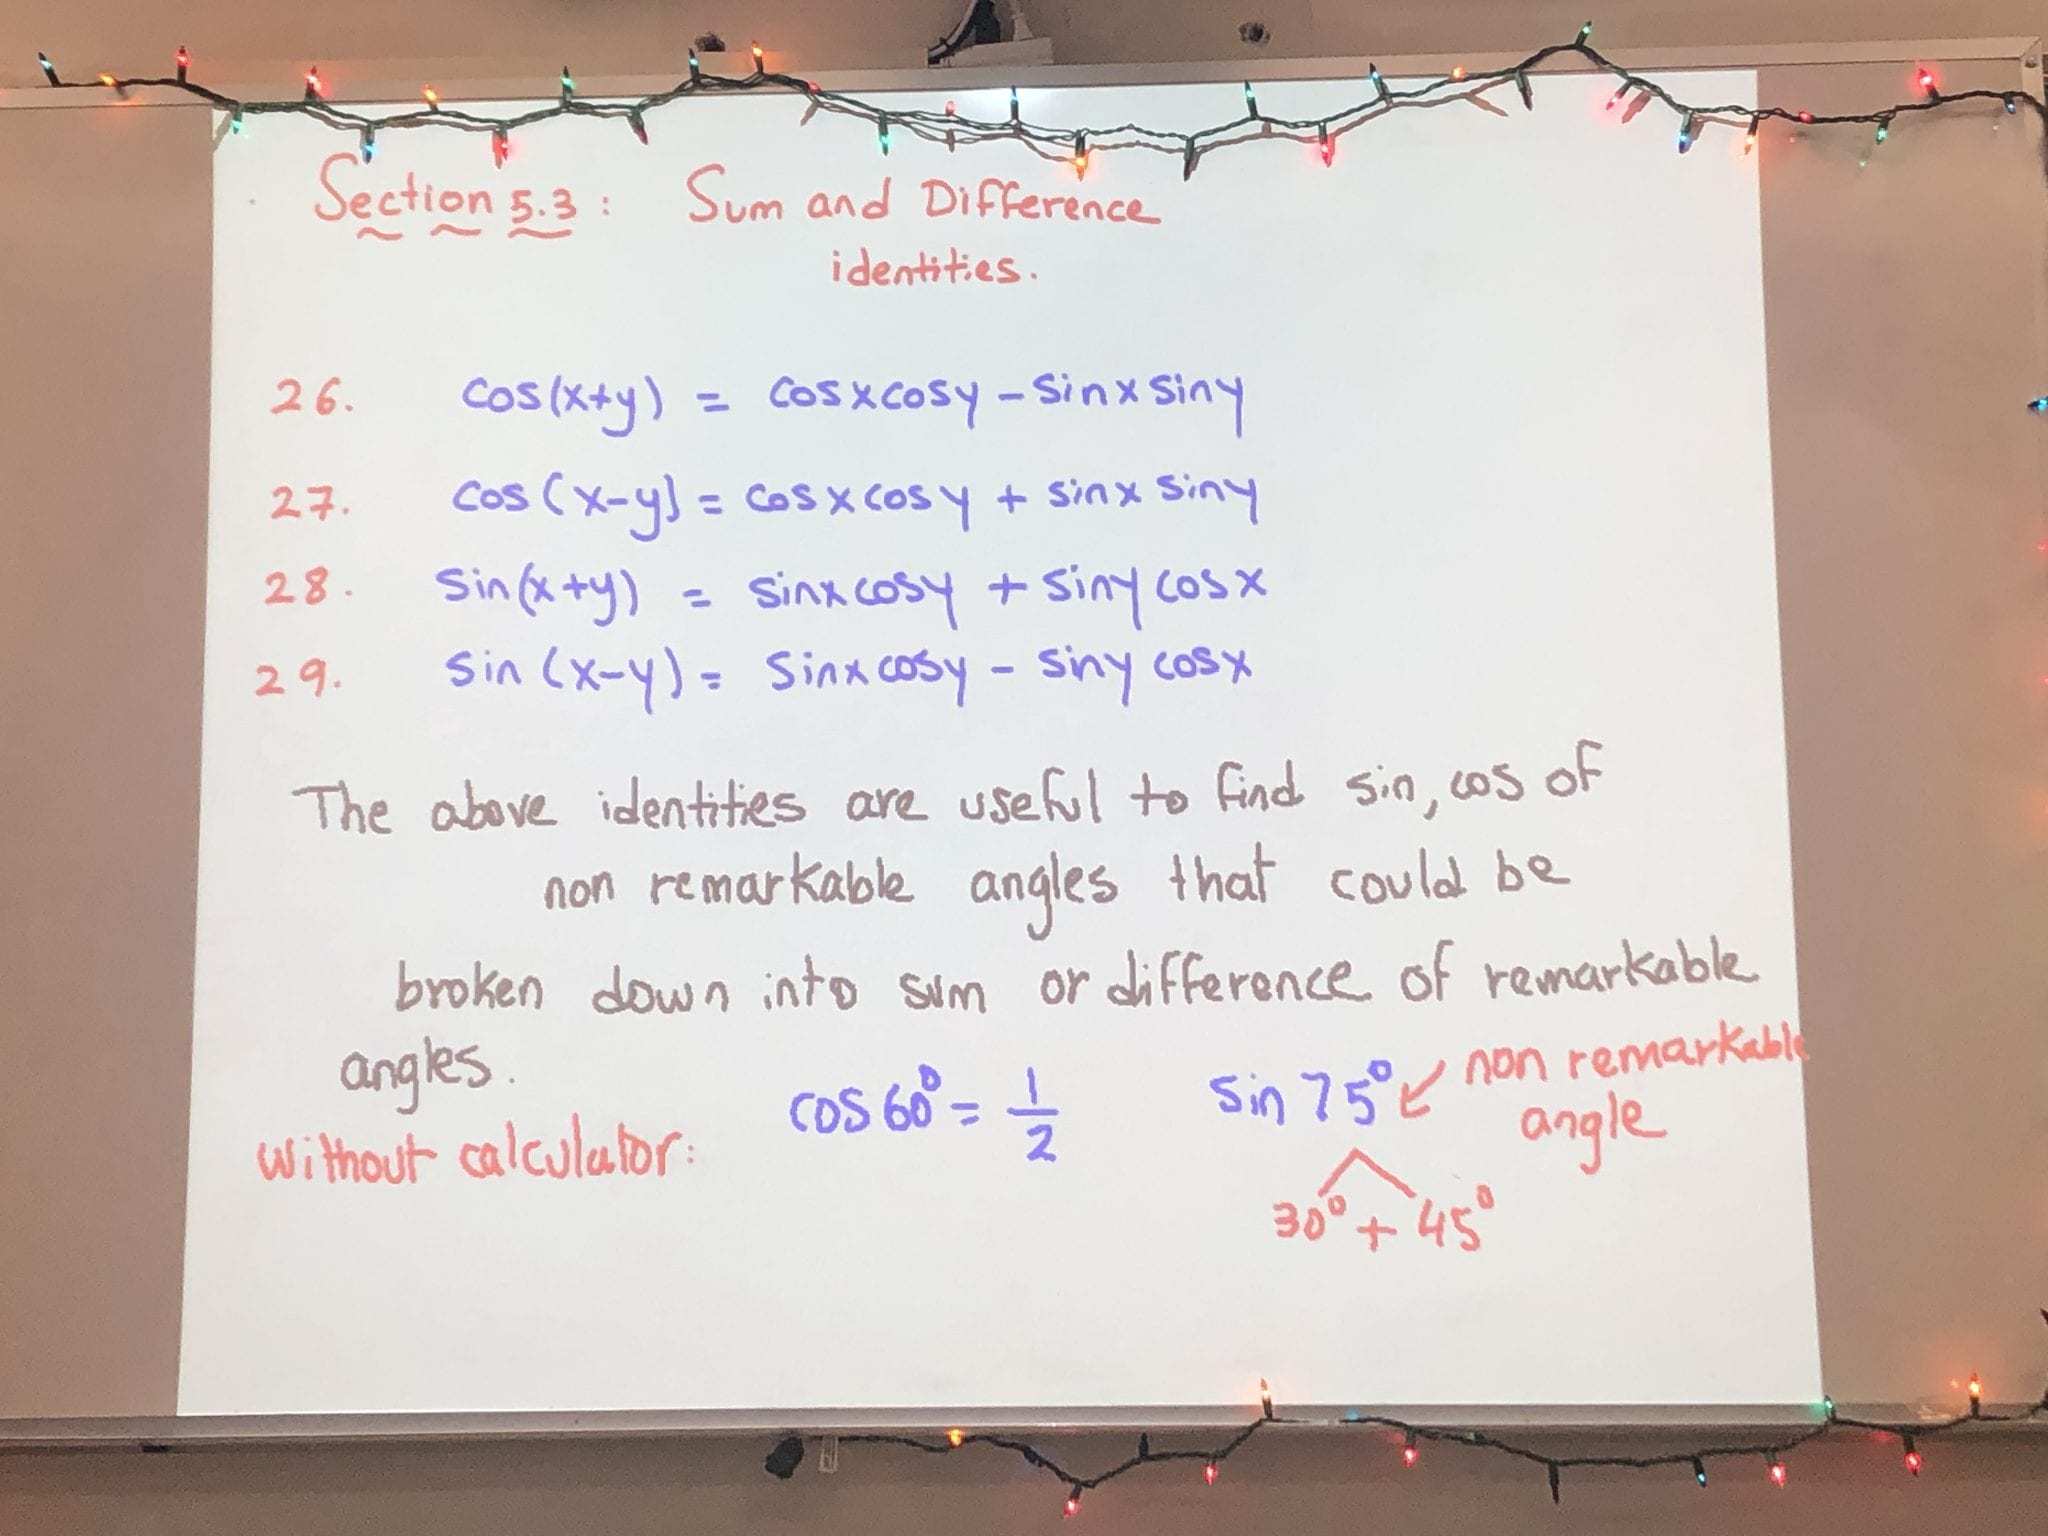 Section 5.3: Sum and Difference
identities.
26. cos(x+y) = cosxcosy - sinx siny
27. cos(x-y) = cosxcosy + sinx siny
28. sin(x+y) = sinxcosy + siny cosx
29. sin(x-y) = sinxcosy - siny cosx
The above identities are useful to find sin, cos of
non remarkable angles that could be
broken down into sum or difference of remarkable
angles.
without calculator: cos 60° = 1/2 sin 75° ↙ non remarkable
angle
30° + 45°